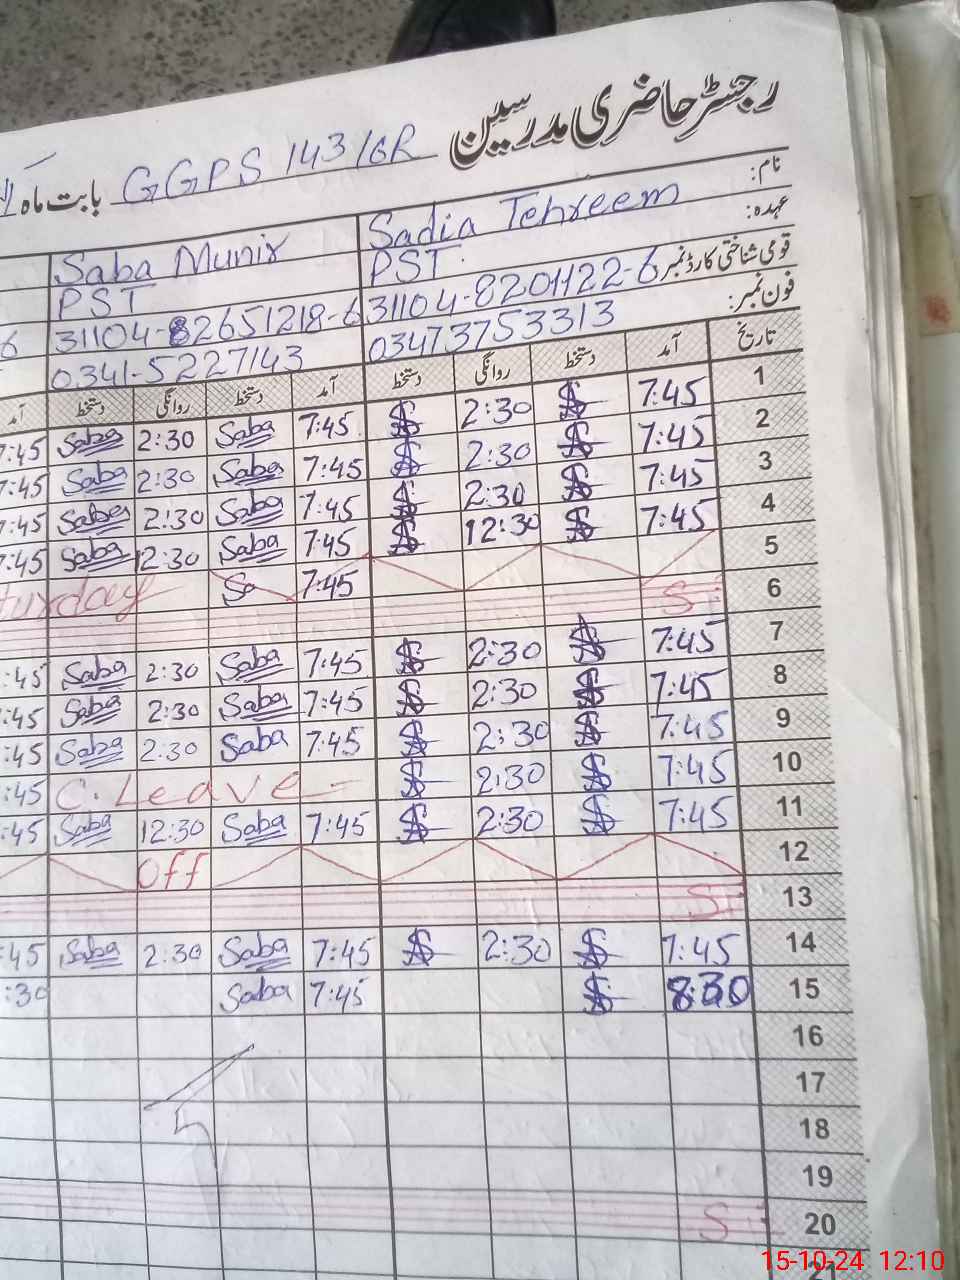 رجسٹر حاضری مدرسین
بابت ماہ GGPS 143/6R
نام: Sadia Tehreem Saba Munir
عہدہ: PST PST
قومی شناختی کارڈ نمبر 31104-8201122-6 31104-82651218-6 6
فون نمبر: 03473753313 0341-5227143
تاریخ آمد دستخط روانگی دستخط آمد دستخط روانگی دستخط آمد
1 7:45 2:30 7:45 Saba 2:30 Saba 7:45
2 7:45 2:30 7:45 Saba 2:30 Saba 7:45
3 7:45 2:30 7:45 Saba 2:30 Saba 7:45
4 7:45 12:30 7:45 Saba 12:30 Saba 7:45
5 7:45 Sa turday
6 S
7 7:45 2:30 7:45 Saba 2:30 Saba :45
8 7:45 2:30 7:45 Saba 2:30 Saba :45
9 7:45 2:30 7:45 Saba 2:30 Saba :45
10 7:45 2:30 C. Leave :45
11 7:45 2:30 7:45 Saba 12:30 Saba :45
12 Off
13 S
14 7:45 2:30 7:45 Saba 2:30 Saba :45
15 8:30 7:45 Saba :30
16
17
18
19
20 S
21
15-10-24 12:10